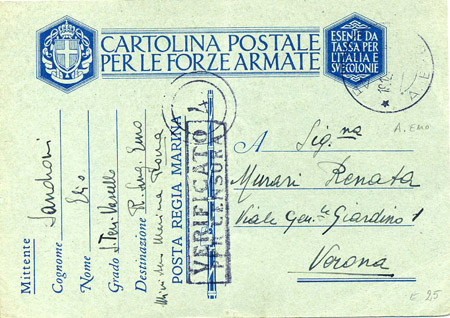 CARTOLINA POSTALE
PER LE FORZE ARMATE
ESENTE DA
TASSA PER
L'ITALIA E
SUE COLONIE
A. Emo
A Sig.na
Murari Renata
Viale Gen.le Giardino 1
Verona
E 25
Mittente
Cognome Sandroni
Nome Elio
Grado S. Ten. Vascello
Destinazione R. Smg. Emo
Ministero Marina Roma
POSTA REGIA MARINA
VERIFICATO
PER CENSURA
4